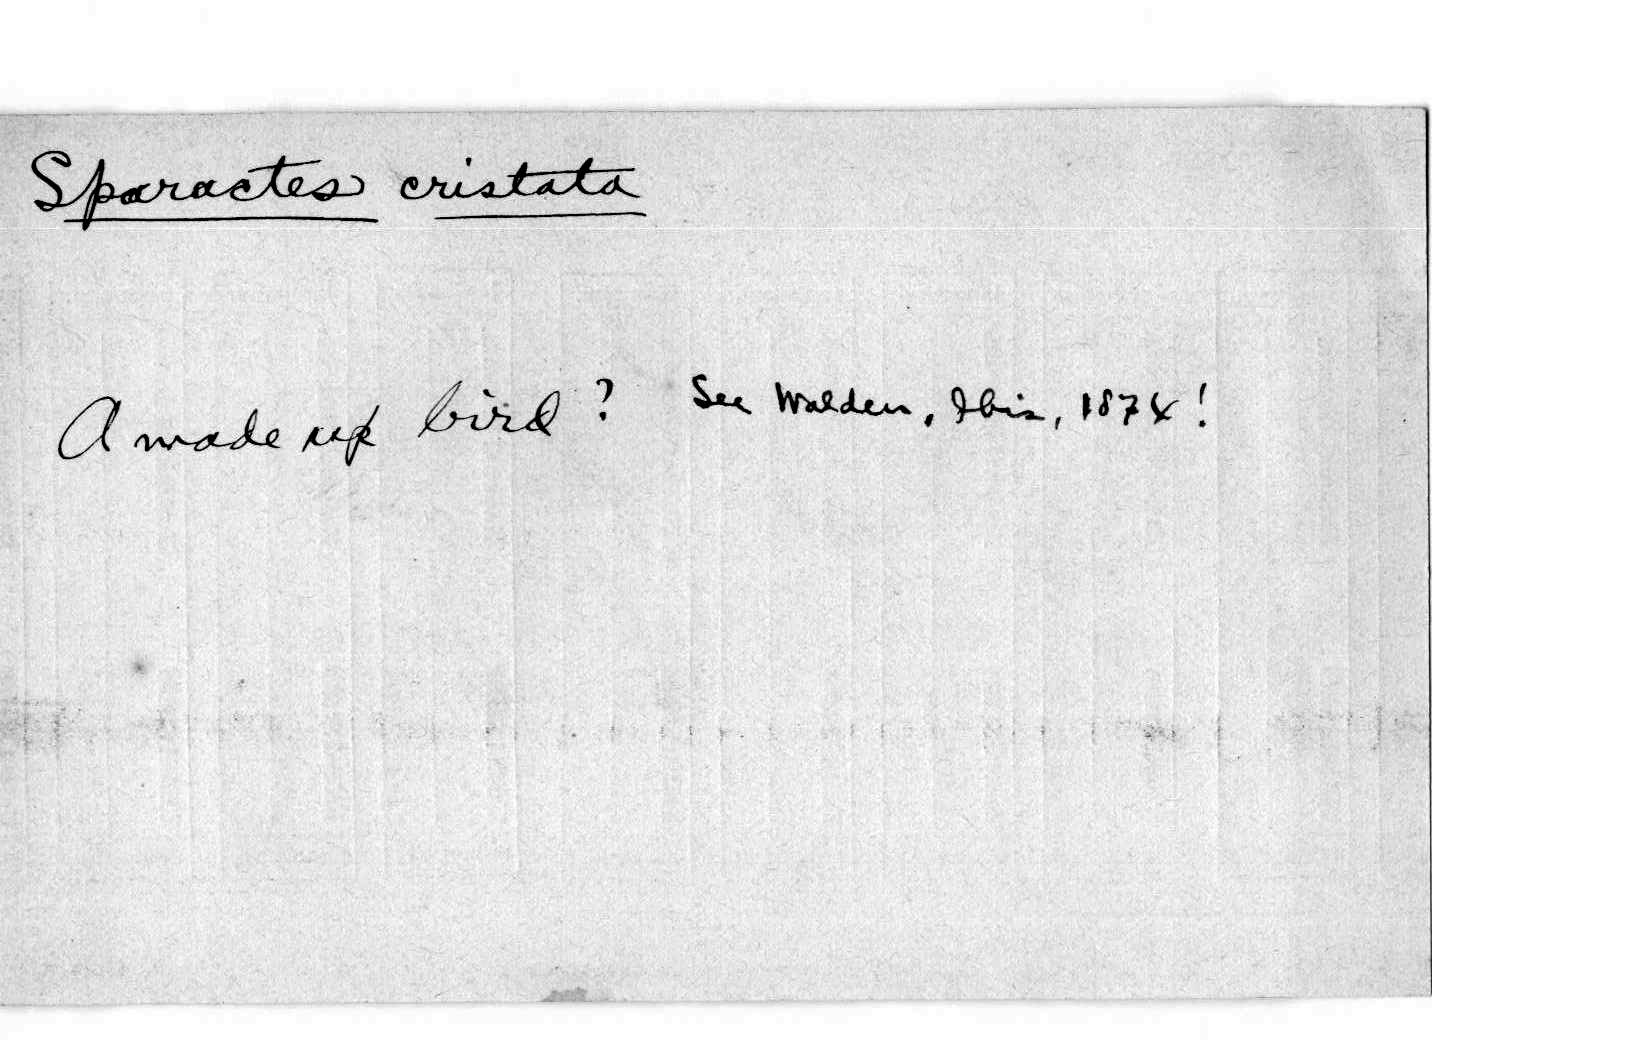 Sparactes cristata
A made up bird? See Walden, Ibis, 1874!